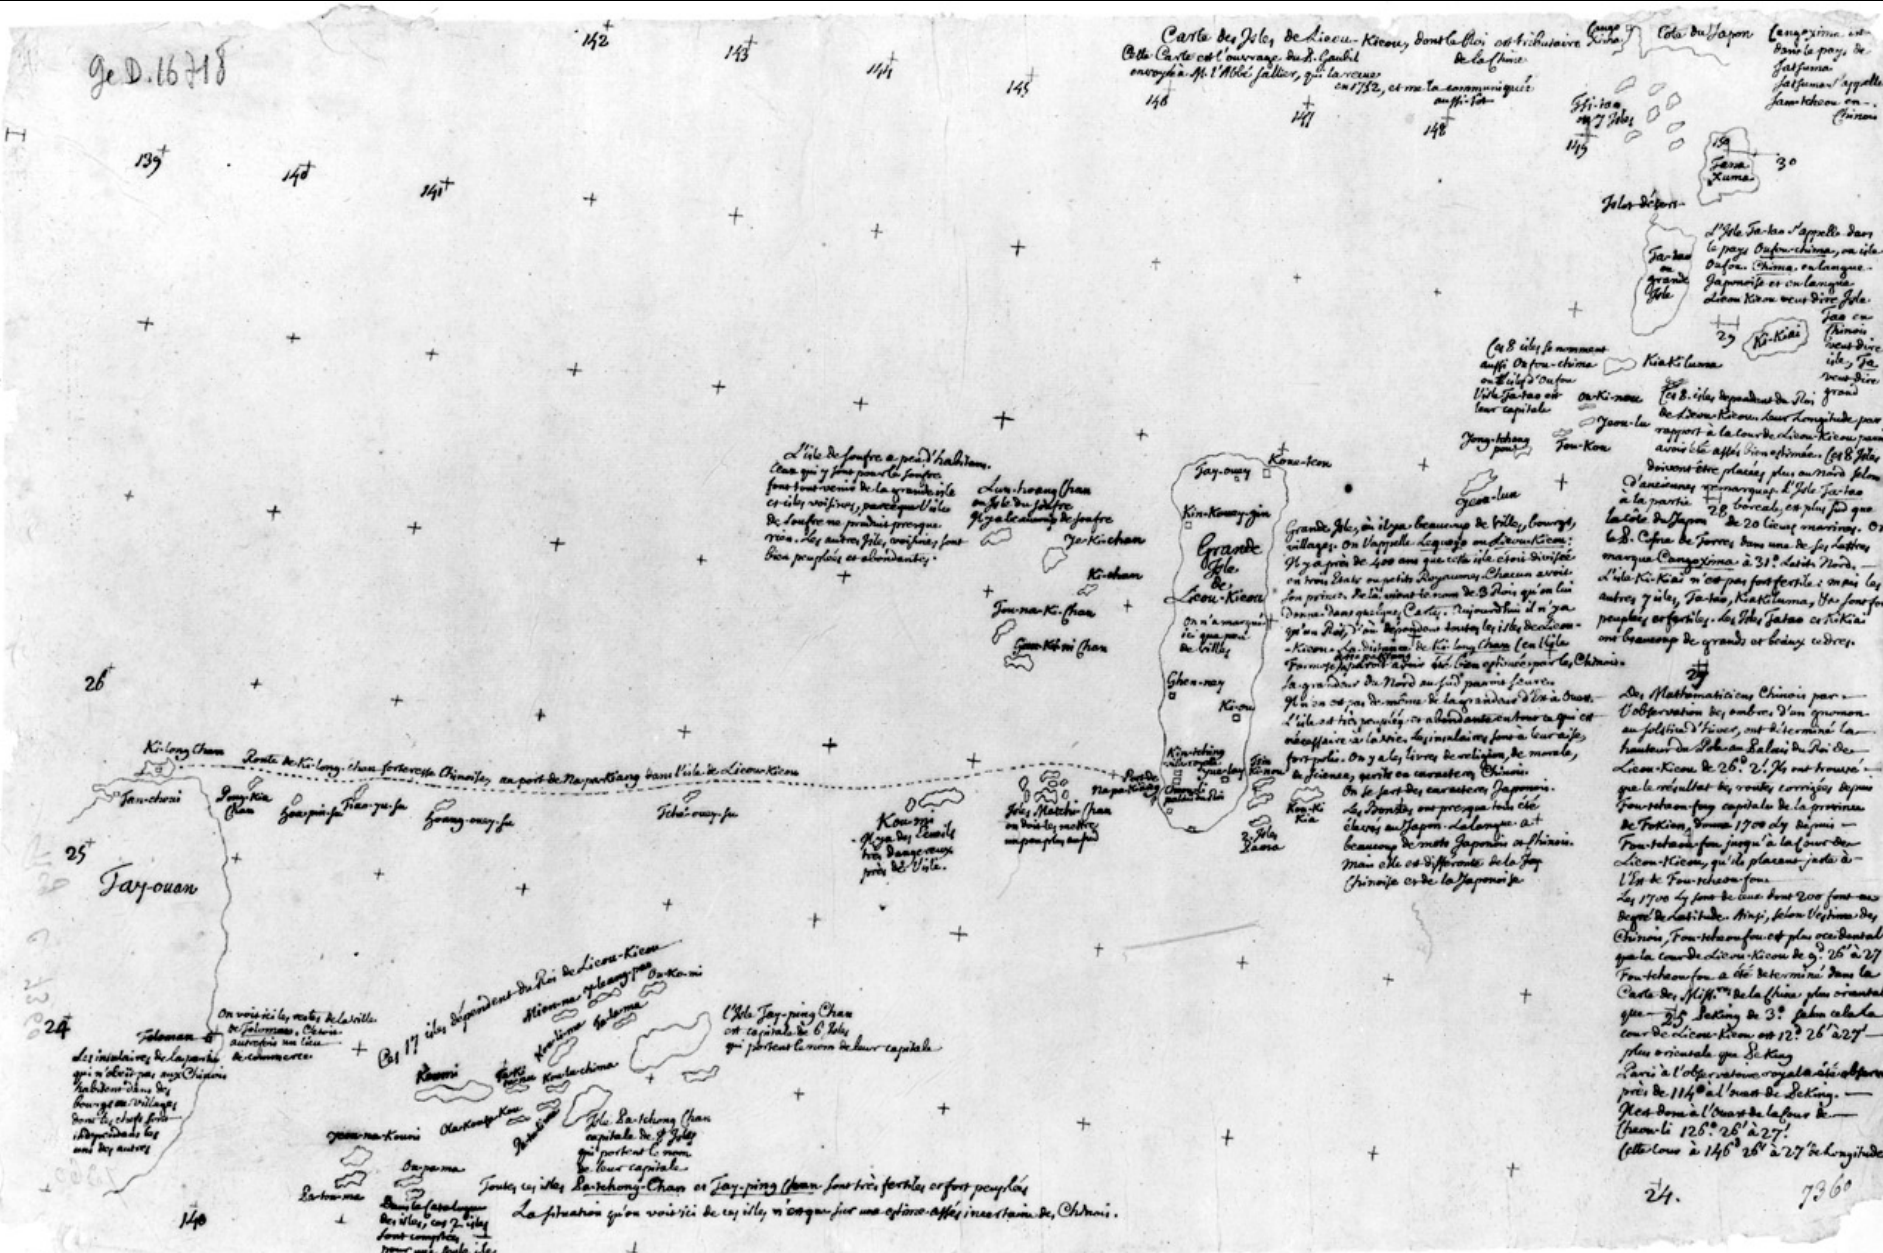 Ge D. 16718
142
143
144
145
139
140
141
Carte des Isles de Lieou-Kieou, dont le Roi est tributaire
de la Chine
Cette Carte est l'ouvrage du P. Gaubil
envoyée à M. l'Abbé Sallier, qui l'a reçue
en 1752, et me l'a communiquée
aussi-tôt
146
147
148
149
Cangoxima
Cote du Japon
Cangoxima est
dans le pays de
Satsuma
Satsuma s'appelle
Sam-tcheou en
Chinois
ou 7 Isles
150
Tana
Xuma
30
Isles désert
Ta-tao
ou
grande
Isle
L'Isle Ta-tao s'appelle dans
le pays Oufou-chima, ou isle
Oufou. Chima en langue
Japonoise et en langue
Lieou Kieou veut dire Isle
Tao en
Chinois
veut dire
isle, Ta
veut dire
grand
29
Ki-Kiai
Ces 8 isles se nomment
aussi Oufou-chima
ou isles d'Oufou
L'isle Ta-tao est
leur capitale
Kiakiluma
Ou-Ki-nou
Yeou-lu
Tou-Kou
Yong-tchong
pou
Yeou-lun
Ces 8 isles dependent du Roi
de Lieou-Kieou. Leur Longitude par
rapport à la Cour de Lieou-Kieou paroit
avoir été assés bien estimée. Ces 8 Isles
doivent être placées plus au Nord selon
d'anciennes remarques. L'Isle Ta-tao
à la partie 28 boreale, est plus sud que
la côte du Japon de 20 lieues marines.
le P. Côme de Torres dans une de ses Lettres
marque Cangoxima à 31°. Latit. Nord.
L'isle Ki-Kiai n'est pas fort fertile: mais les
autres 7 isles, Ta-tao, Kiakiluma, &c sont fort
peuplées et fertiles. Les Isles Tatao et KiKiai
ont beaucoup de grands et beaux cedres.
L'isle de soufre a peu d'habitans.
Ceux qui y sont pour le soufre
font tout venir de la grande isle
et isles voisines, parce que l'isle
de Soufre ne produit presque
rien. Les autres Isles, voisines sont
bien peuplées et abondantes.
Lun-hoang Chan
ou Isle du soufre
Il y a beaucoup de soufre
Ye Ki-chan
Ki-chan
Tou-na-Ki-Chan
Gan-Ki-ni Chan
Tay-ouey
Koue-teou
Kin-Kouey-gin
Grande
Isle
de
Lieou-Kieou
on n'a marqué
ici que peu
de villes
Ghen-nay
Ki-ou
Kin-tching
ville royale
Cheou-li
palais du Roi
Port de
Na-pa-Kiang
Grande Isle, où il y a beaucoup de Villes, bourgs,
villages. On l'appelle Lequejo ou Lieou-Kieou:
Il y a près de 400 ans que cette isle étoit divisée
en trois Etats ou petits Royaumes. Chacun avoit
son prince. De là vient le nom de 3 Rois qu'on lui
donne dans quelques Cartes. Aujourd'hui il n'y a
qu'un Roi, d'où dépendent toutes les isles de Lieou-
-Kieou. La distance de Ki-long Chan (en l'isle
Formose) paroit avoir été bien estimée par les Chinois.
La grandeur du Nord au Sud paroit seure.
Il n'en est pas de même de la grandeur d'Est à Ouest.
L'isle est très peuplée et abondante en tout ce qui est
nécessaire à la vie. Les insulaires sont à leur aise,
fort polis. On y a les livres de religion, de morale,
de science, écrits en caracteres Chinois.
On se sert des caracteres Japonois.
Les Bonzes ont presque tous été
élevés au Japon. La langue a
beaucoup de mots Japonois et Chinois.
Mais elle est differente de la
Chinoise et de la Japonoise
Kou-Ki
Kia
2 Isles
Pama
27
Des Mathematiciens Chinois par
l'observation des ombres d'un gnomon
au solstice d'hiver, ont déterminé la
hauteur du Pole au Palais du Roi de
Lieou-Kieou de 26d. 2'. Ils ont trouvé
que le résultat des routes corrigées depuis
Fou-tcheou-fou capitale de la province
de Fokien, donne 1700 Ly depuis
Fou-tcheou-fou jusqu'à la Cour de
Lieou-Kieou, qu'ils placent juste à
l'Est de Fou-tcheou-fou.
Les 1700 Ly sont de ceux dont 200 font un
degré de Latitude. Ainsi, selon l'estime des
Chinois, Fou-tcheou fou est plus occidental
que la cour de Lieou-Kieou de 9d. 26' à 27'
Fou-tcheou-fou a été determiné dans la
Carte des Miss.res de la Chine plus oriental
que 25 Peking de 3°. selon cela la
cour de Lieou-Kieou est 12d. 26' à 27'
plus orientale que Peking
Paris à l'observatoire royal a été observé
près de 114d à l'ouest de Peking.
Il est donc à l'Ouest de la Cour de
Cheou-li 126d. 26' à 27'
Cette cour à 146d 26' à 27' de Longitude
24.
7360
26
Ki-long Chan
Route de Ki-long-chan forteresse Chinoise, au port de Na-pa-Kiang dans l'isle de Lieou-Kieou
Tan-choui
Pong-Kia
Chan
Hoa-pin-su
Tiao-yu-su
Hoang-ouey-su
Tche-ouey-su
Kou-mi
Il y a des Ecueils
très dangereux
près de l'Isle.
Isles Matchi-Chan
on doit les mettre
un peu plus au sud
25
Tay-ouan
24
Toloman
On voit ici les restes de la ville
de Toloman. C'étoit
autrefois un lieu
de commerce.
Les insulaires de la partie
qui n'obéit pas aux Chinois
habitent dans des
bourgs ou villages
dont les chefs sont
indépendans les
uns des autres
140
Ces 17 isles dépendent du Roi de Lieou-Kieou
Mien-na
Ou-Ka-mi
Koumi
Kou-li-ma
Ta-la-ma
Kou-la-chima
Ola-Kou-se-Kou
Yeou-na-Kouni
Ou-pa-ma
Pa-tou-ma
l'Isle Tay-ping Chan
est capitale de 6 Isles
qui portent le nom de leur capitale
Isle Pa-tchong Chan
capitale de 9 Isles
qui portent le nom
de leur capitale
Dans le Catalogue
des isles, ces 2 isles
sont comptées
pour une seule isle
Toutes ces isles Pa-tchong-Chan et Tay-ping Chan sont très fertiles et fort peuplées
La situation qu'on voit ici de ces isles n'est que sur une estime assés incertaine des Chinois.